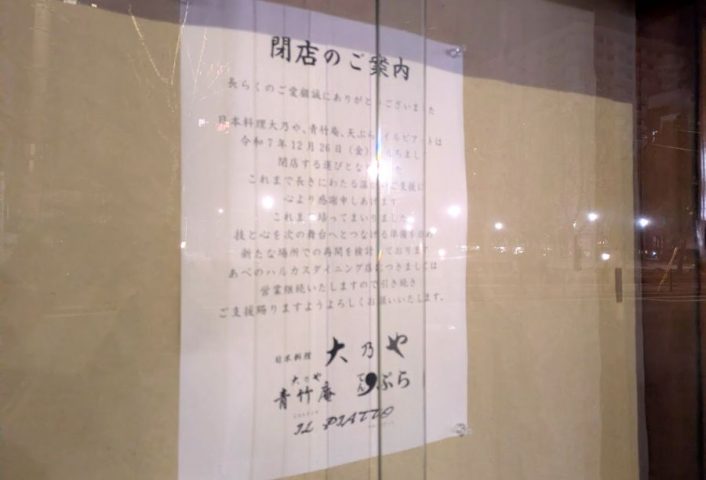 閉店のご案内
長らくのご愛顧誠にありがとうございました
日本料理大乃や、青竹庵、天ぷら、イルピアートは
令和7年12月26日(金)をもちまして
閉店する運びとなりました
これまで長きにわたる温かいご支援に
心より感謝申しあげます
これまで培ってまいりました
技と心を次の舞台へとつなげる準備を進め
新たな場所での再開を検討しております
あべのハルカスダイニング店につきましては
営業継続いたしますので引き続き
ご支援賜りますようよろしくお願いいたします。
日本料理 大乃や
大乃や
青竹庵 天ぷら
IL PIATTO